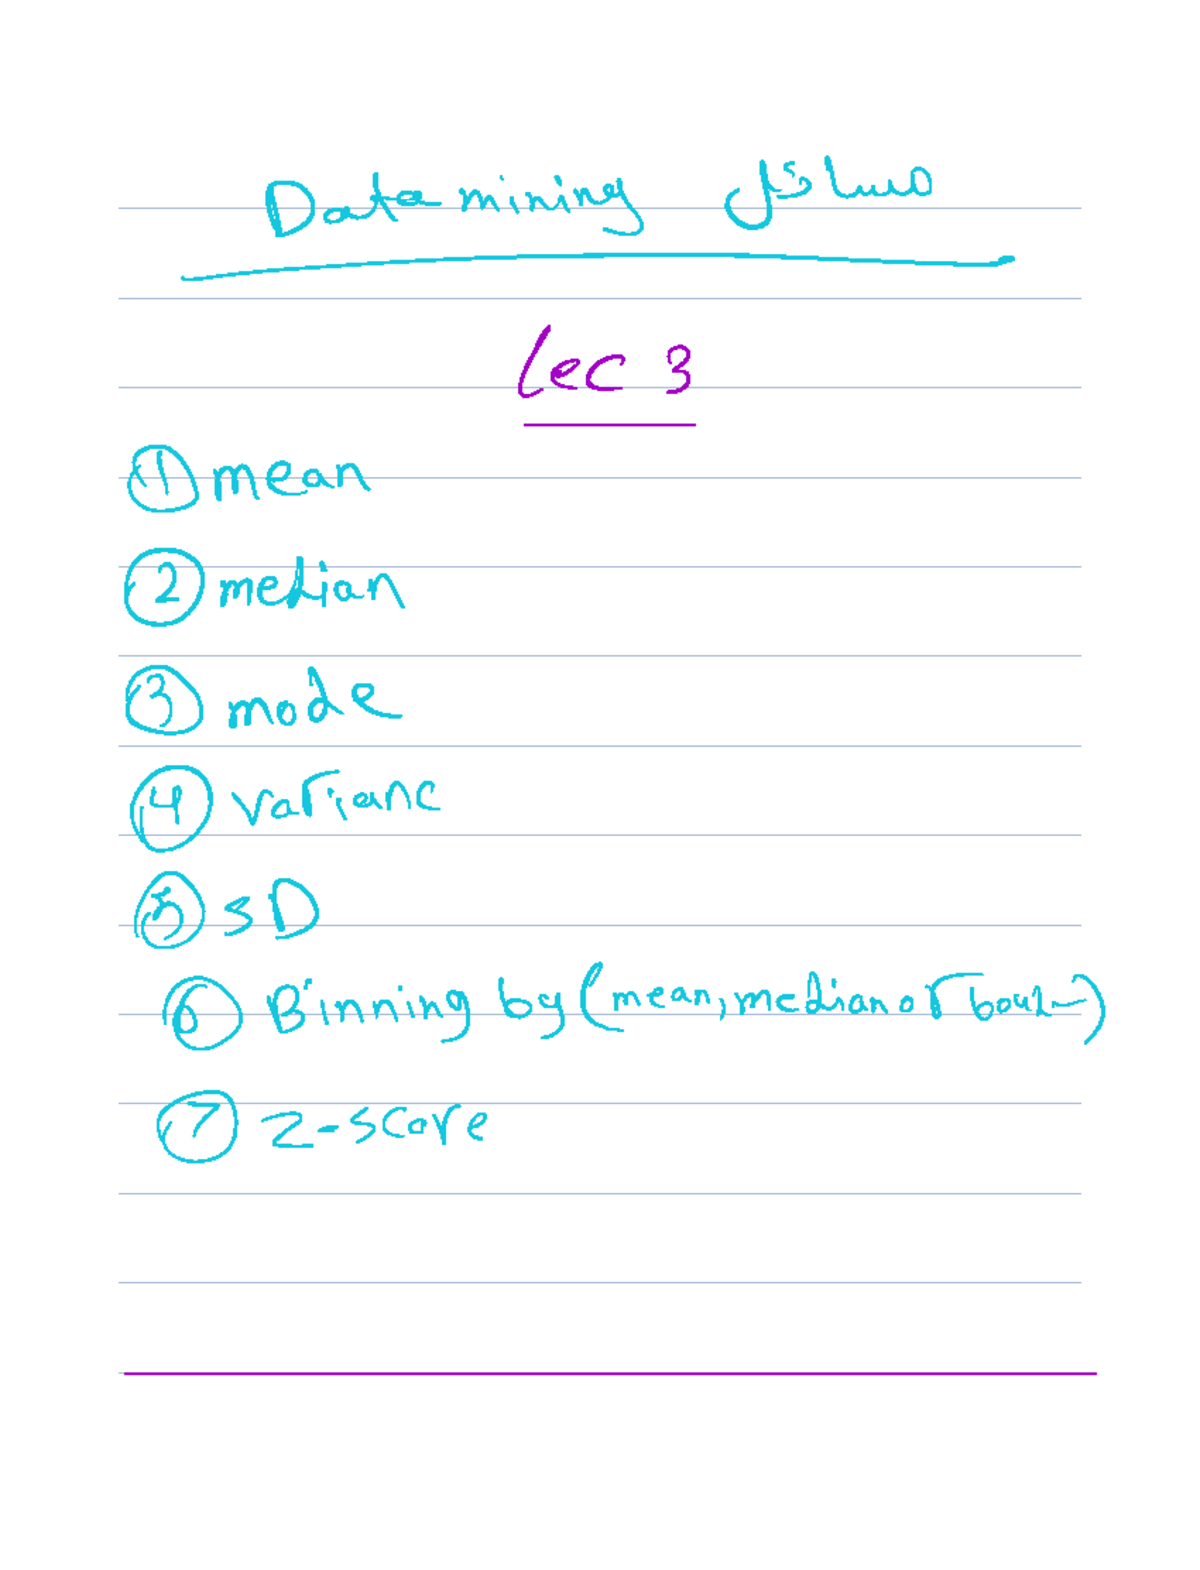 Data mining مسائل
Lec 3
1 mean
2 median
3 mode
4 varianc
5 SD
6 Binning by (mean, median or
7 Z-score